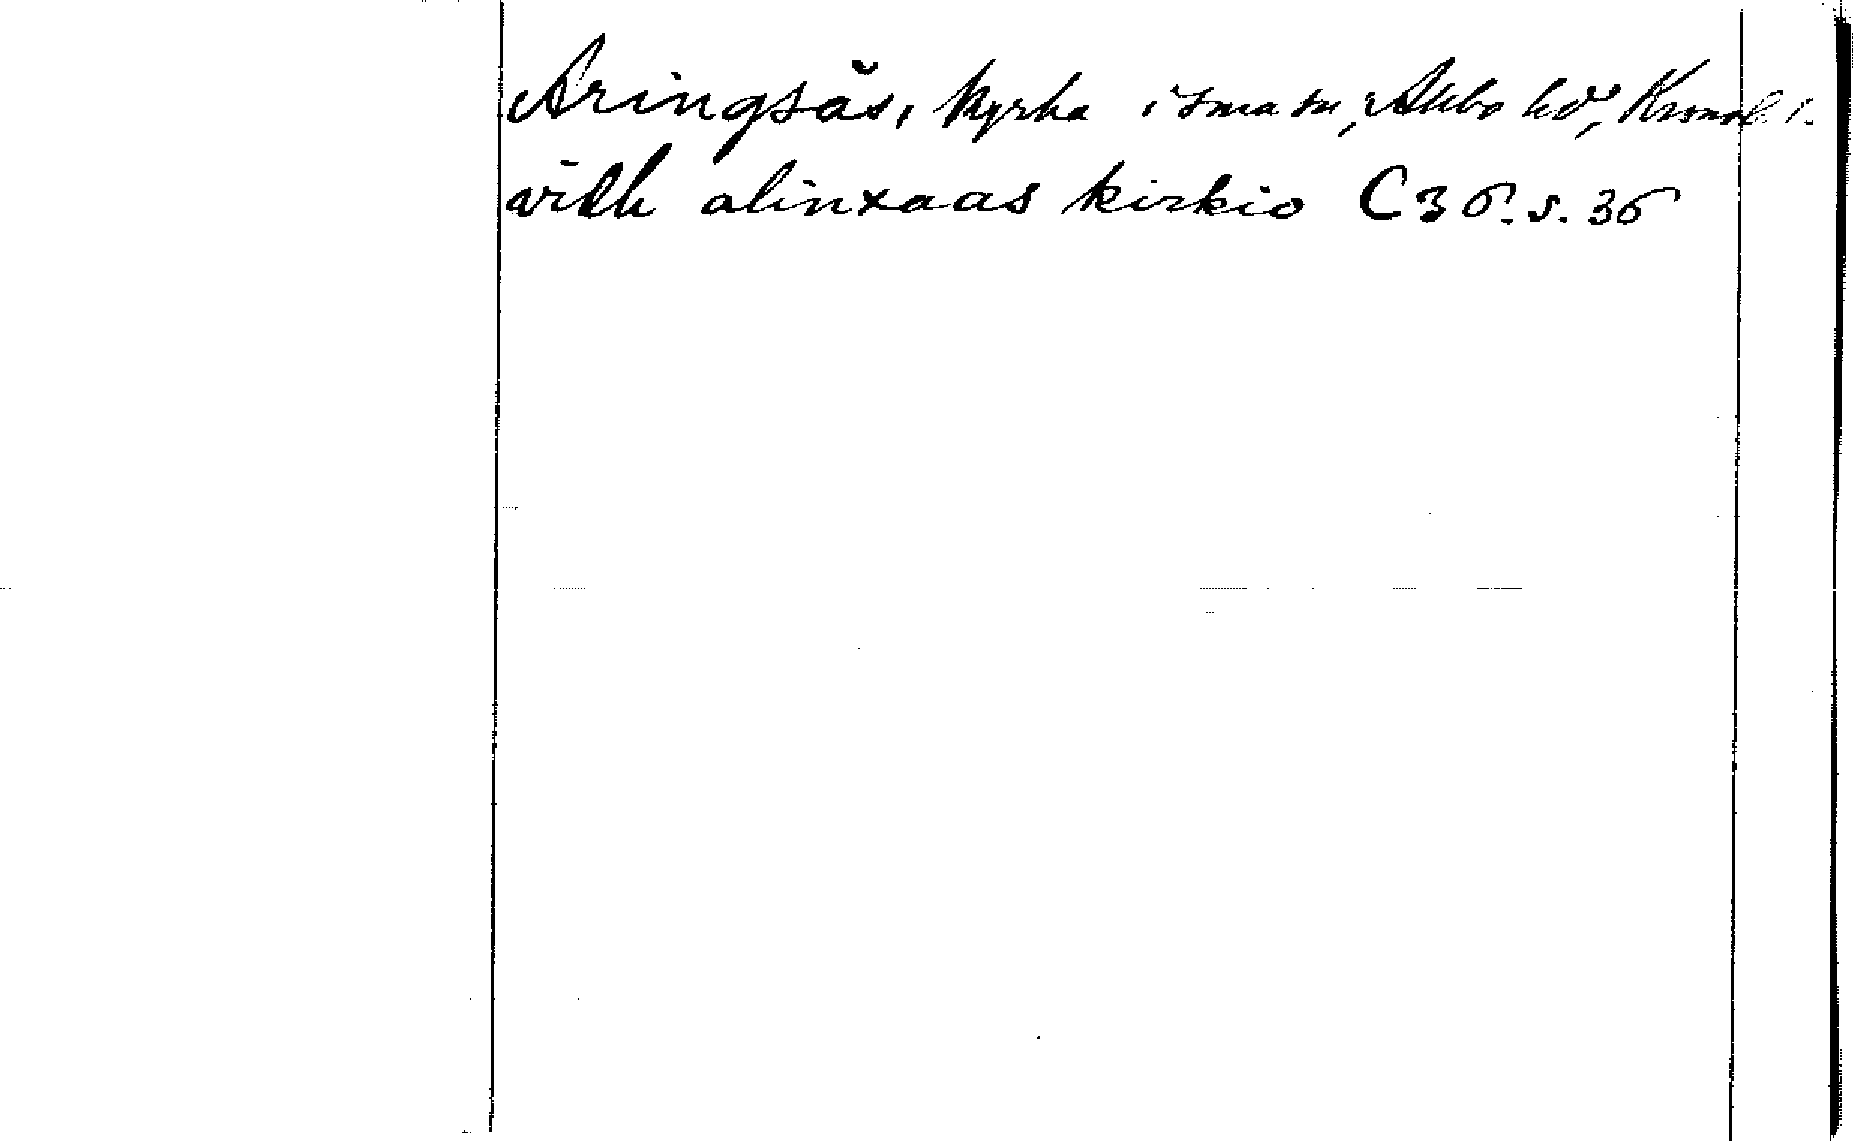 Aringsås, kyrka i sma sn, Allbo hd, Kronob. l.
vith alinxaas kirkio C 36. s. 36